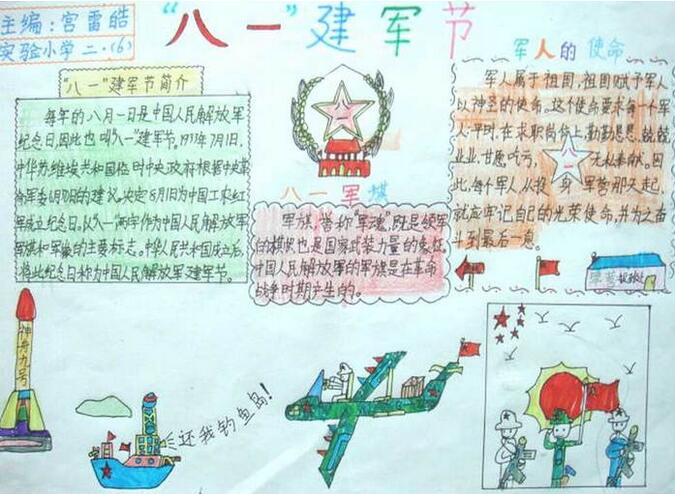 主编：宫雷皓
实验小学 二·(6)
"八一"建军节
"八一"建军节简介
每年的八月一日是中国人民解放军
纪念日,因此也叫"八一"建军节。1933年7月1日,
中华苏维埃共和国临时中央政府根据中央革
命军委6月30日的建议。决定8月1日为中国工农红
军成立纪念日。以"八一"两字作为中国人民解放军
军旗和军徽的主要标志。中华人民共和国成立后,
将此纪念日称为中国人民解放军建军节。
八一
八一军旗
军旗,誉称"军魂",既是领军
的旗帜也是国家武装力量的象征,
中国人民解放军的军旗是在革命
战争时期产生的。
军人的使命
军人属于祖国,祖国赋予军人
以神圣的使命。这个使命要求每一个军
人平时,在求职岗位上,勤勤恳恳,兢兢
业业,甘愿吃亏,无私奉献。因
此,每个军人从投身军营那天起,
就应牢记自己的光荣使命,并为之奋
斗到最后一息。
八一
神舟九号
还我钓鱼岛!